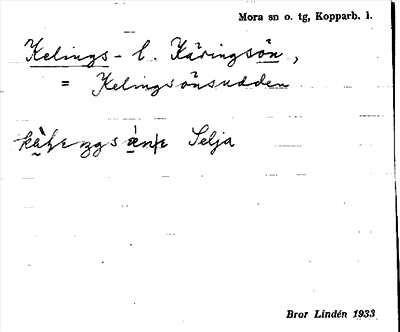 Mora sn o. tg, Kopparb. l.
Kelings- l. Käringsön,
= Kelingsönsudden
Selja
Bror Lindén 1933